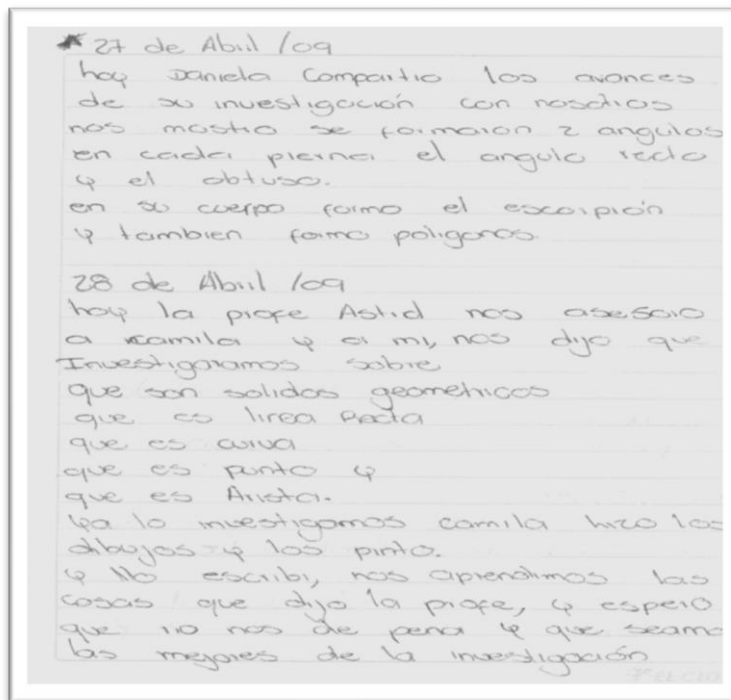 27 de Abril /09
hoy Daniela Compartio los avances
de su investigación con nosotros
nos mostro se formaron 2 angulos
en cada pierna el angulo recto
y el obtuso.
en su cuerpo formo el escorpión
y tambien formo poligonos.
28 de Abril /09
hoy la profe Astrid nos asesoro
a camila y a mi, nos dijo que
Investigaramos sobre
que son solidos geometricos
que es linea Recta
que es curva
que es punto y
que es Arista.
ya lo investigamos camila hizo los
dibujos y los pinto.
y Yo escribi, nos aprendimos las
cosas que dijo la profe, y espero
que no nos de pena y que seamo
las mejores de la investigación